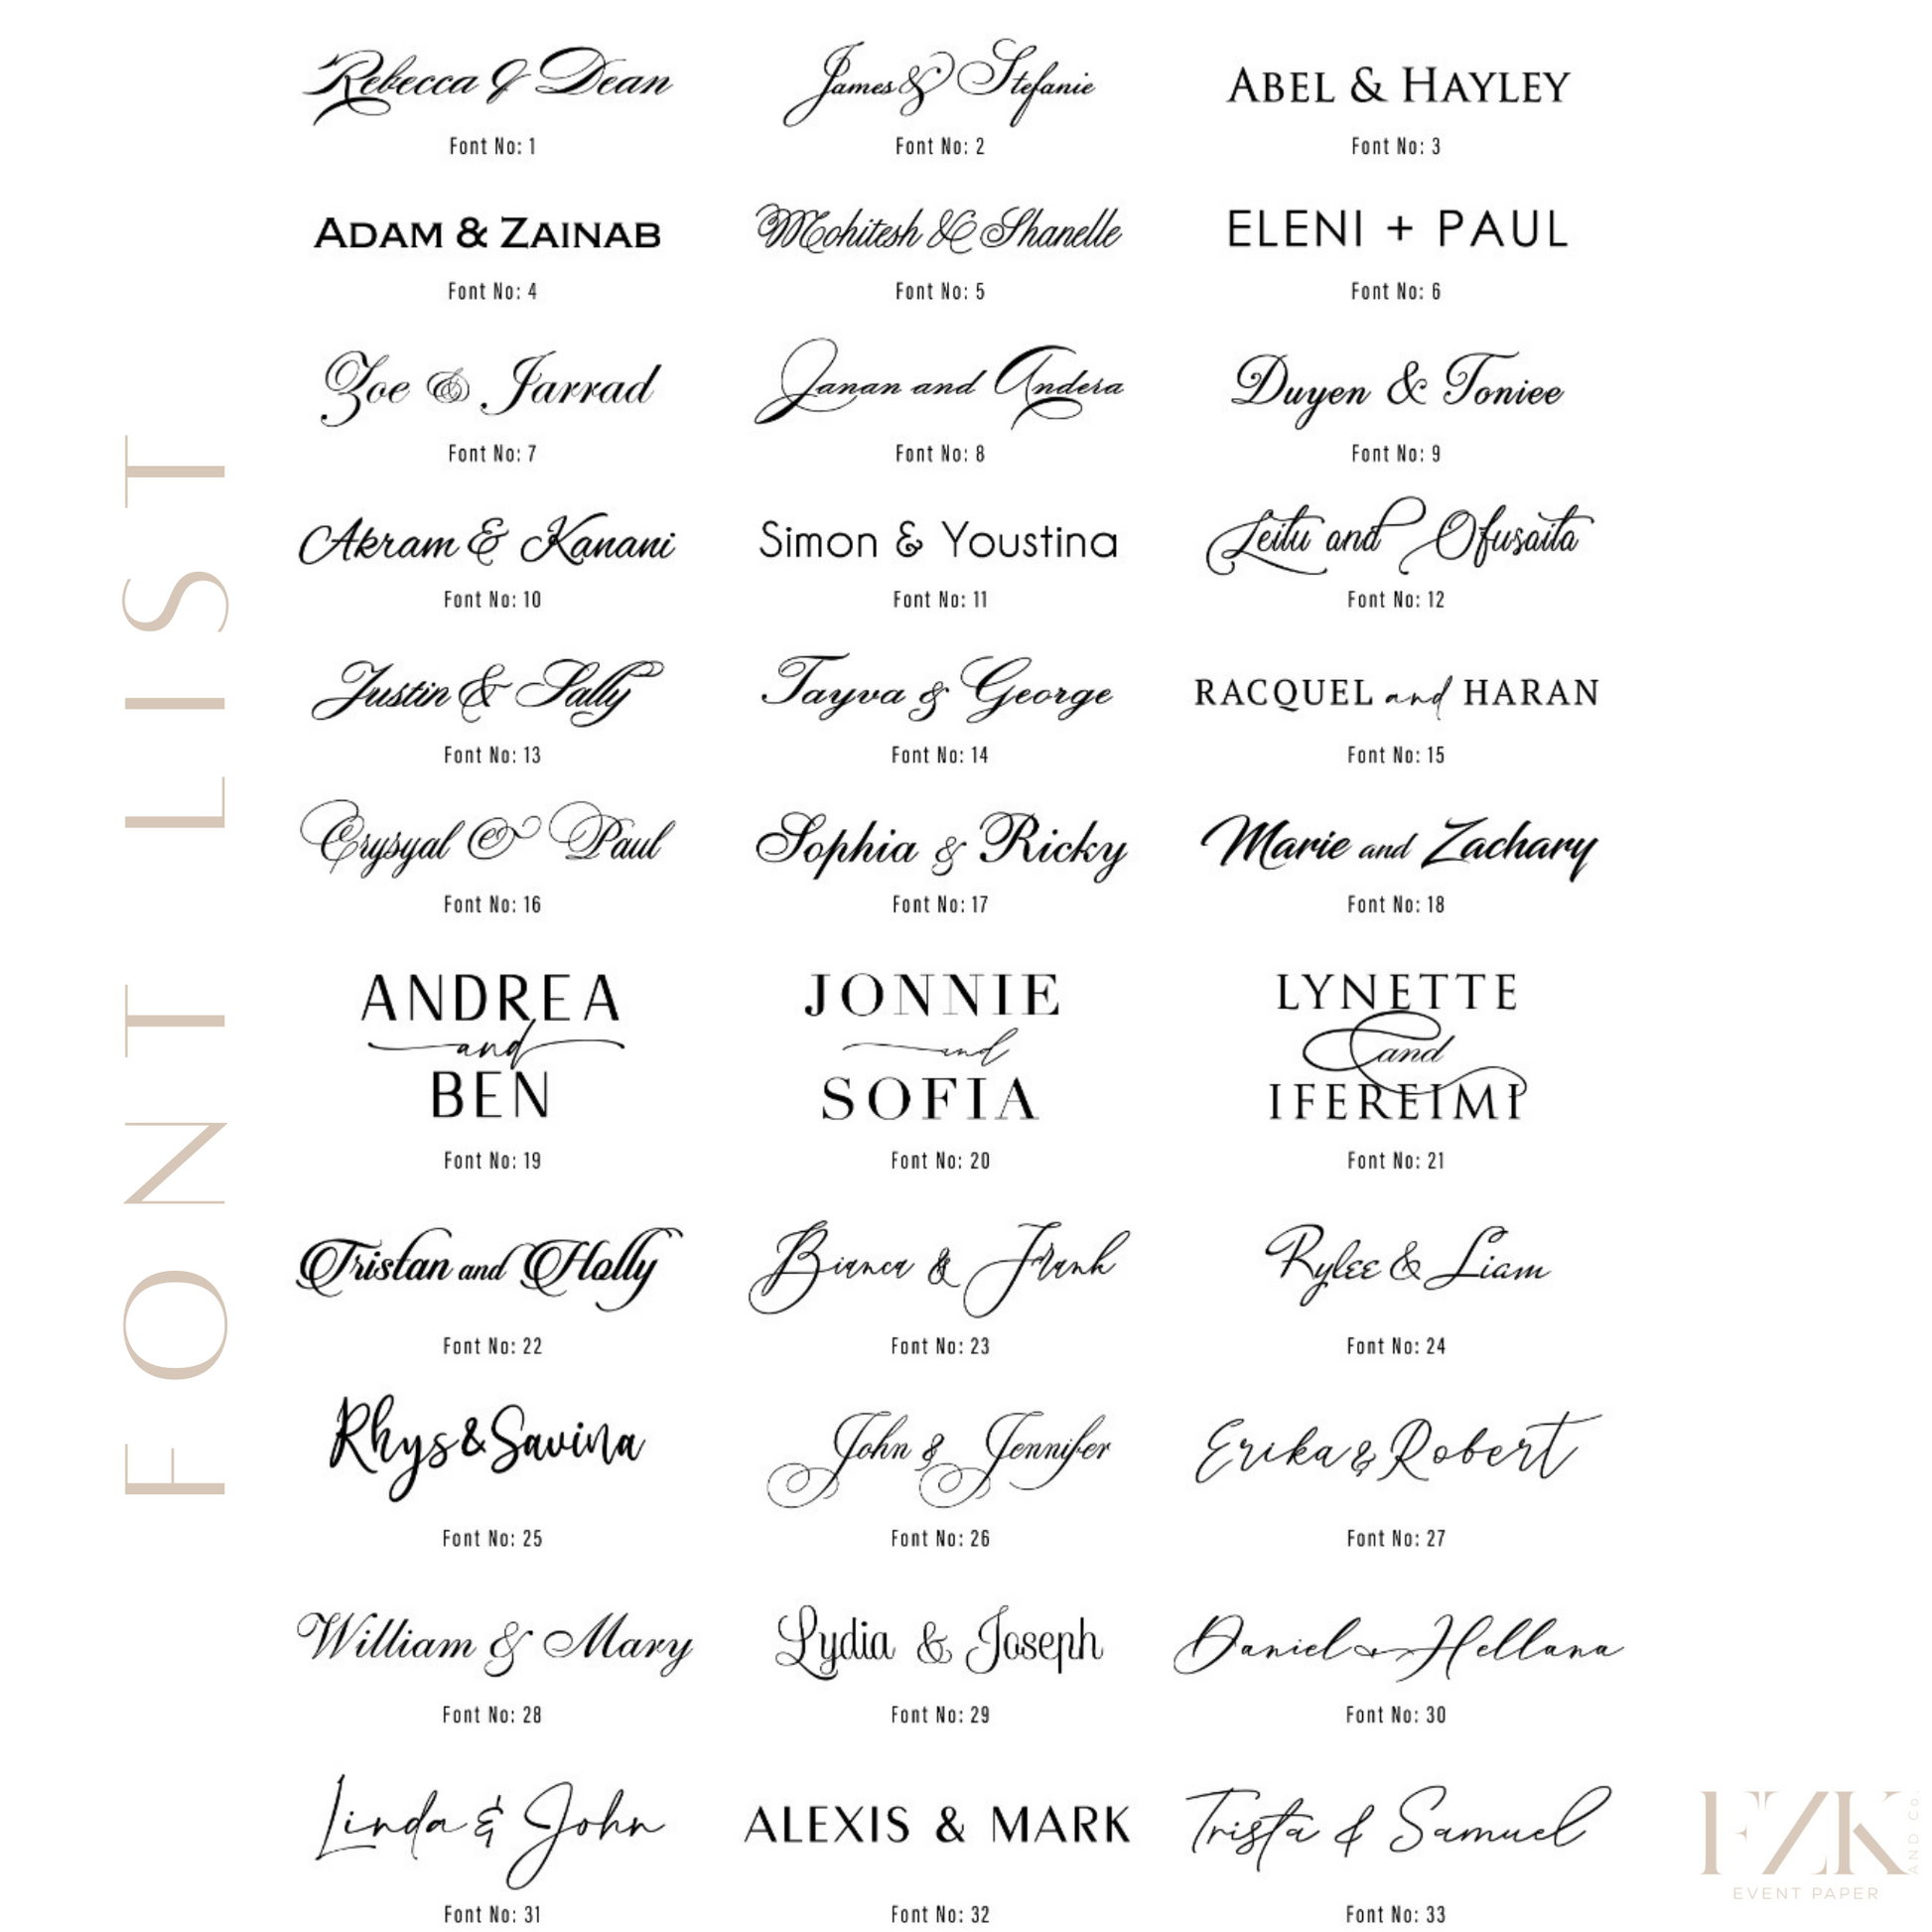 FONT LIST
Rebecca & Dean
Font No: 1
James & Stefanie
Font No: 2
ABEL & HAYLEY
Font No: 3
ADAM & ZAINAB
Font No: 4
Mohitesh & Shanelle
Font No: 5
ELENI + PAUL
Font No: 6
Zoe & Jarrad
Font No: 7
Janan and Andera
Font No: 8
Duyen & Toniee
Font No: 9
Akram & Kanani
Font No: 10
Simon & Youstina
Font No: 11
Leitu and Ofusaita
Font No: 12
Justin & Sally
Font No: 13
Tayva & George
Font No: 14
RACQUEL and HARAN
Font No: 15
Crysyal & Paul
Font No: 16
Sophia & Ricky
Font No: 17
Marie and Zachary
Font No: 18
ANDREA
and
BEN
Font No: 19
JONNIE
and
SOFIA
Font No: 20
LYNETTE
and
IFEREIMI
Font No: 21
Tristan and Holly
Font No: 22
Bianca & Frank
Font No: 23
Rylee & Liam
Font No: 24
Rhys & Savina
Font No: 25
John & Jennifer
Font No: 26
Erika & Robert
Font No: 27
William & Mary
Font No: 28
Lydia & Joseph
Font No: 29
Daniel & Hellana
Font No: 30
Linda & John
Font No: 31
ALEXIS & MARK
Font No: 32
Trista & Samuel
Font No: 33
FZK
AND Co.
EVENT PAPER